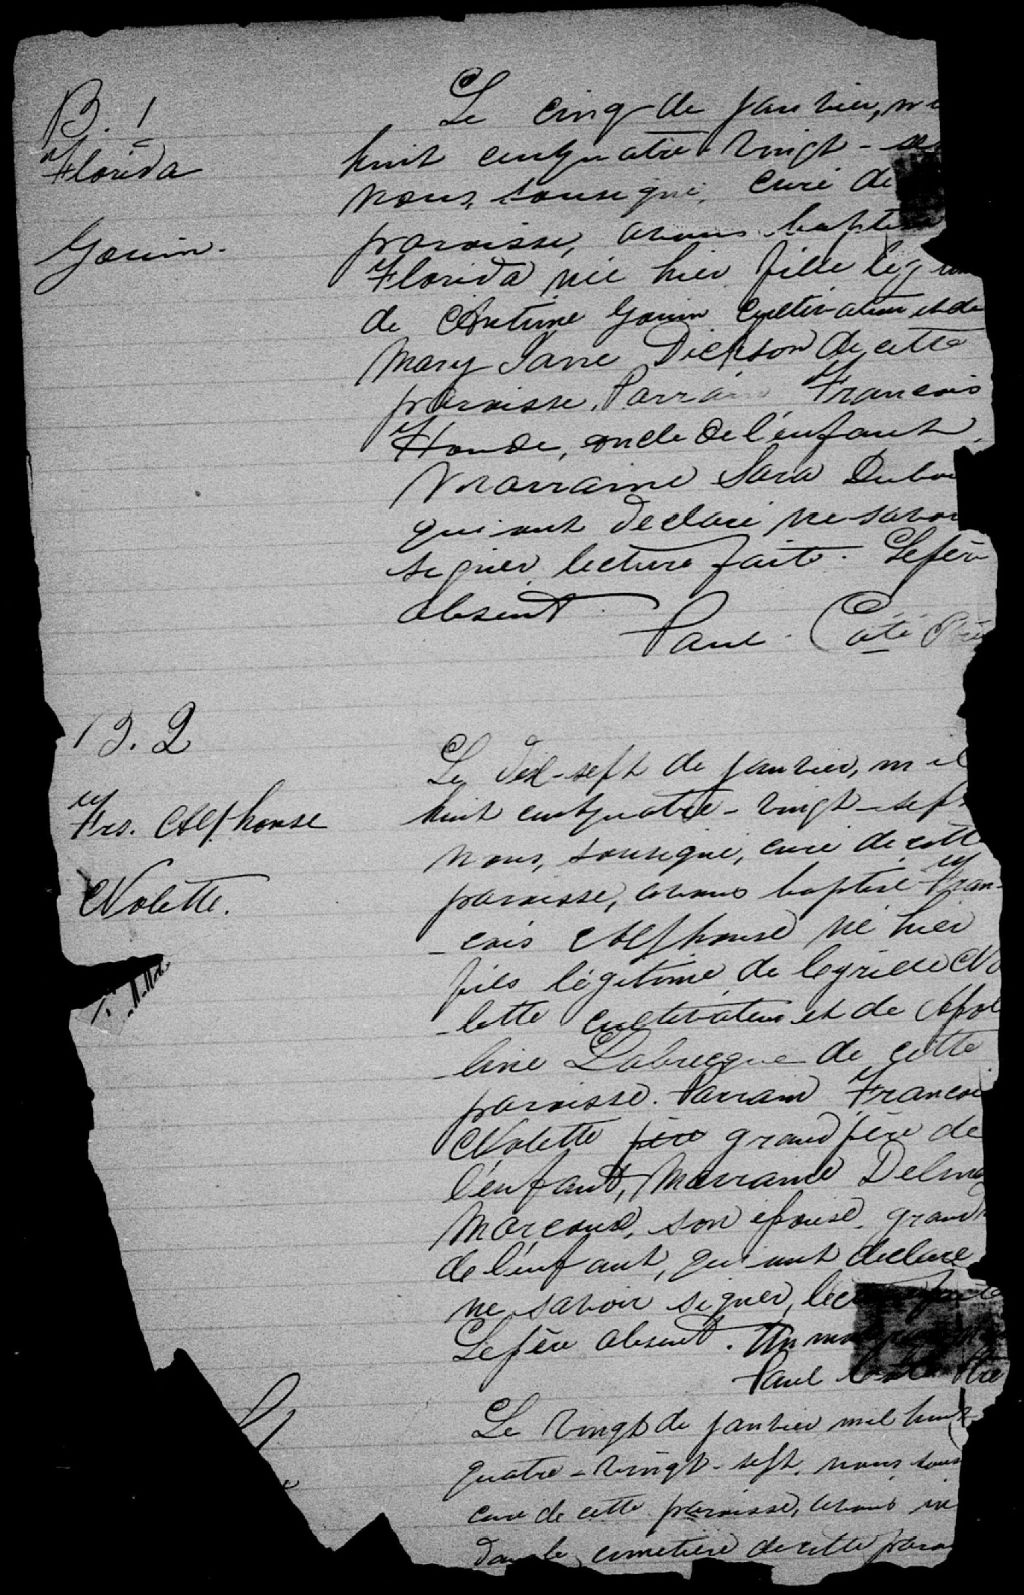 B. 1
Florida
Gouin.
Le cinq de janvier, mi
huit cent quatre vingt - se
nous, soussigné, curé de
paroisse, avons baptisé
Florida née hier fille légi
de Antoine Gouin cultivateur et de
Mary Jane Dickson de cette
paroisse. Parrain François
Houde, oncle de l'enfant,
Marraine Sara Dubo
qui ont déclaré ne savoir
signer, lecture faite. Le père
absent.
Paul Côté Ptre
B. 2
Frs. Alphonse
Nolette.
Le dix-sept de janvier, mil
huit cent quatre-vingt-sept
nous, soussigné, curé de cette
paroisse, avons baptisé Fran-
-cois Alphonse né hier
fils légitime de No
-lette cultivateur et de Apol
-line Labrecque de cette
paroisse. Parrain François
Nolette père grand père de
l'enfant, Marraine Delin
Marcoux, son épouse, grand
de l'enfant, qui ont déclaré
ne savoir signer, lecture faite
Le père absent. Un mot
Paul Côté Ptre
Le vingt de janvier mil huit
quatre-vingt-sept, nous sous
curé de cette paroisse, avons in
dans le cimetière de cette paroi